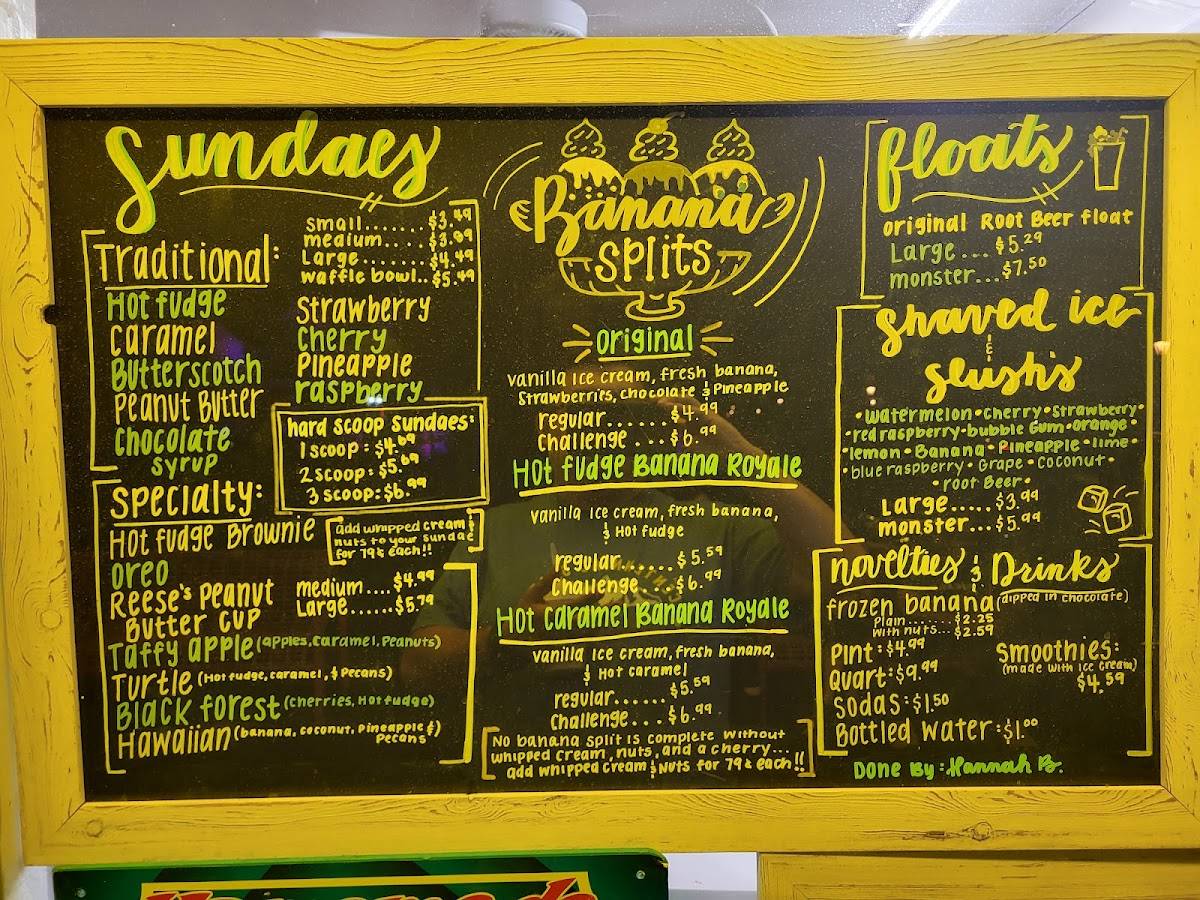 Sundaes
Small.......$3.49
medium....$3.99
Large........$4.49
waffle bowl..$5.49
Traditional:
Hot fudge
Caramel
Butterscotch
Peanut Butter
Chocolate
syrup
Strawberry
Cherry
Pineapple
raspberry
hard scoop Sundaes:
1 scoop: $4.69
2 scoop: $5.69
3 scoop: $6.99
Specialty:
Hot fudge Brownie
Oreo
Reese's Peanut
Butter Cup
add whipped cream &
nuts to your sundae
for 79¢ each!!
medium....$4.99
Large......$5.79
Taffy apple (apples, caramel, Peanuts)
Turtle (Hot fudge, caramel, & Pecans)
Black forest (cherries, Hot fudge)
Hawaiian (banana, coconut, Pineapple &
Pecans)
Banana
Splits
Original
vanilla ice cream, fresh banana,
Strawberries, chocolate & Pineapple
regular.......$4.99
Challenge ...$6.99
Hot fudge Banana Royale
vanilla ice cream, fresh banana,
& Hot fudge
regular.......$5.59
Challenge....$6.99
Hot Caramel Banana Royale
vanilla ice cream, fresh banana,
& Hot caramel
regular......$5.59
Challenge...$6.99
No banana split is complete without
whipped cream, nuts, and a cherry...
add whipped cream & Nuts for 79¢ each!!
floats
original Root Beer float
Large...$5.29
monster...$7.50
Shaved ice
&
slushi's
•watermelon•cherry•strawberry•
•red raspberry•bubble Gum•orange•
•lemon•Banana•Pineapple•lime•
•blue raspberry•Grape•coconut•
•root Beer•
Large.....$3.99
monster...$5.99
novelties & Drinks
frozen banana (dipped in chocolate)
Plain.......$2.25
with nuts...$2.59
Pint:$4.99
Quart:$9.99
Sodas:$1.50
Bottled water:$1.00
Smoothies:
(made with ice cream)
$4.59
Done By: Hannah B.